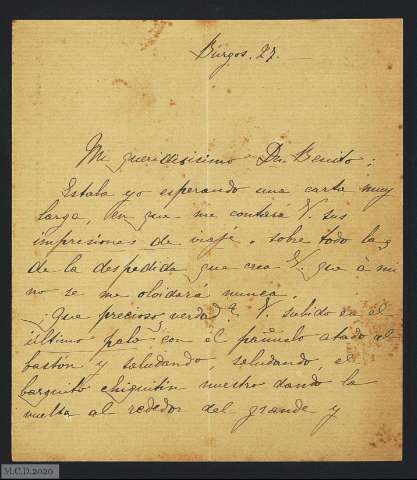 Búrgos, 27.
Mi queridisisimo Dn. Benito:
Estaba yo esperando una carta muy
larga, en que me contára V. sus
impresiones de viaje, sobre todo las
de la despedida que crea V. que á mi
no se me olvidará nunca.
¿Que precioso verdad? V. subido en el
último palo con el pañuelo atado al
bastón y saludando, saludando, el
barquito chiquitin nuestro dando la
vuelta al rededor del grande y
M.C.D.2020